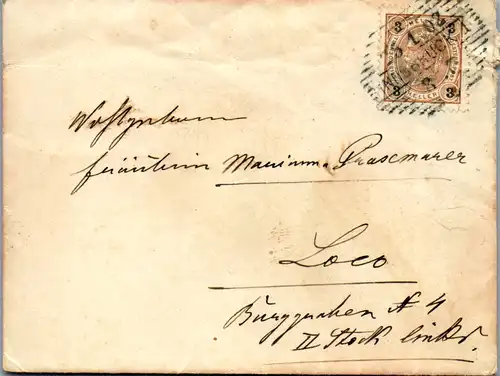 3 3
HELLER
3 3
Wohlgeboren
Fräulein Marianna Prasemarer
Loco
Burggraben N 4
II Stock links.